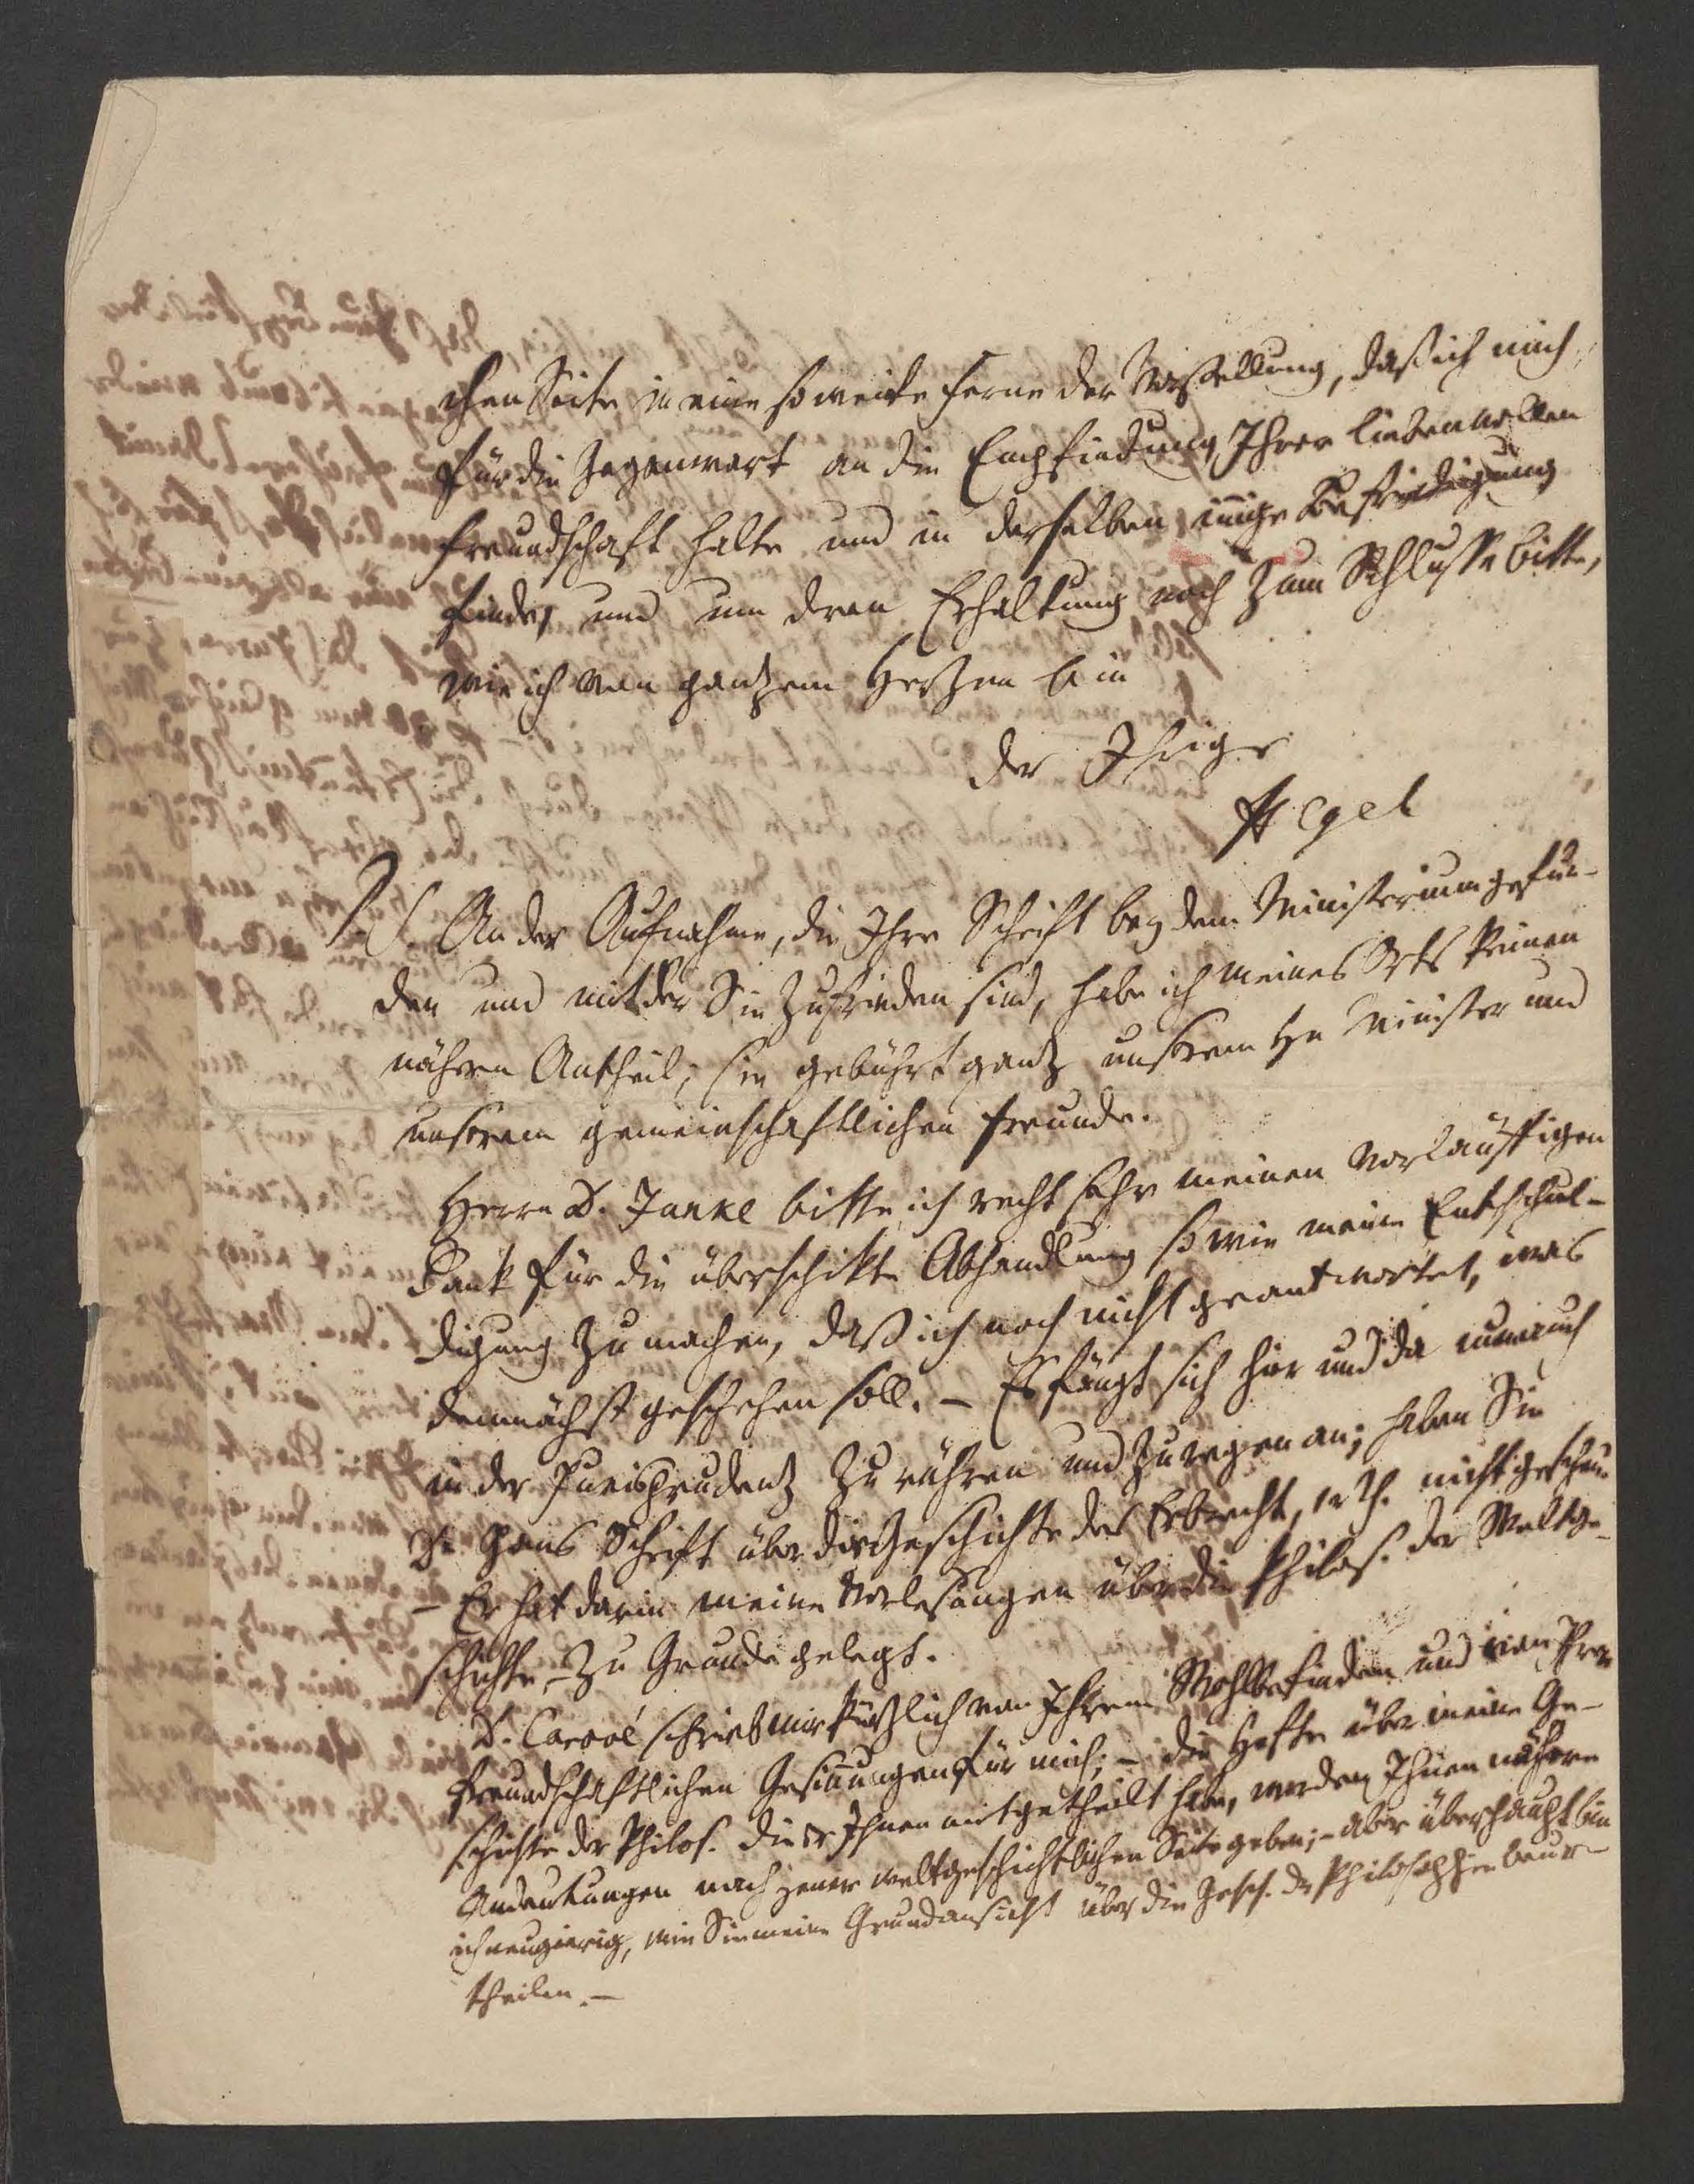 chen Seite in eine so weite Ferne der Vorstellung, daß ich mich
für die Gegenwart an die Empfindung Ihrer liebevollen
Freundschaft halte und in derselben innige Befriedigung
finde, und um dren Erhaltung noch zum Schlusse bitte,
wie ich von gantzem Hertzen bin
der Ihrige
Hegel
P.S. An der Aufnahme, die Ihre Schrift bey dem Ministerium gefun-
den und mit der Sie zufrieden sind, habe ich meines Orts keinen
nähern Antheil; sie gebührt gantz unsrem Hn Minister und
unsrem gemeinschaftlichen Freunde.
Herrn D. Janke bitte ich recht sehr meinen vorläuffigen
Dank für die überschikte Abhandlung so wie meine Entschul-
digung zu machen, daß ich noch nicht geantwortet, was
demnächst geschehen soll. – Es fängt sich hier und da nun auch
in der Jurisprudentz zu rühren und zu regen an; haben Sie
Dr Gans Schrift über die Geschichte des Erbrecht, 1r Th. nicht gesehen
– Er hat darin meine Vorlesungen über die Philos. der Weltge-
schichte – zu Grunde gelegt.
D. Carové schrieb mir kürtzlich von Ihrem Wohlbefinden und von Ihren
freundschaftlichen Gesinnungen für mich; – die Hefte über meine Ge-
schichte der Philos. die er Ihnen mitgetheilt habe, werden Ihnen nähere
Andeutungen nach jener weltgeschichtlichen Seite geben; – aber überhaupt bin
ich neugierig, wie Sie meine Grundansicht über die Gesch. der Philosophie beur-
theilen. –